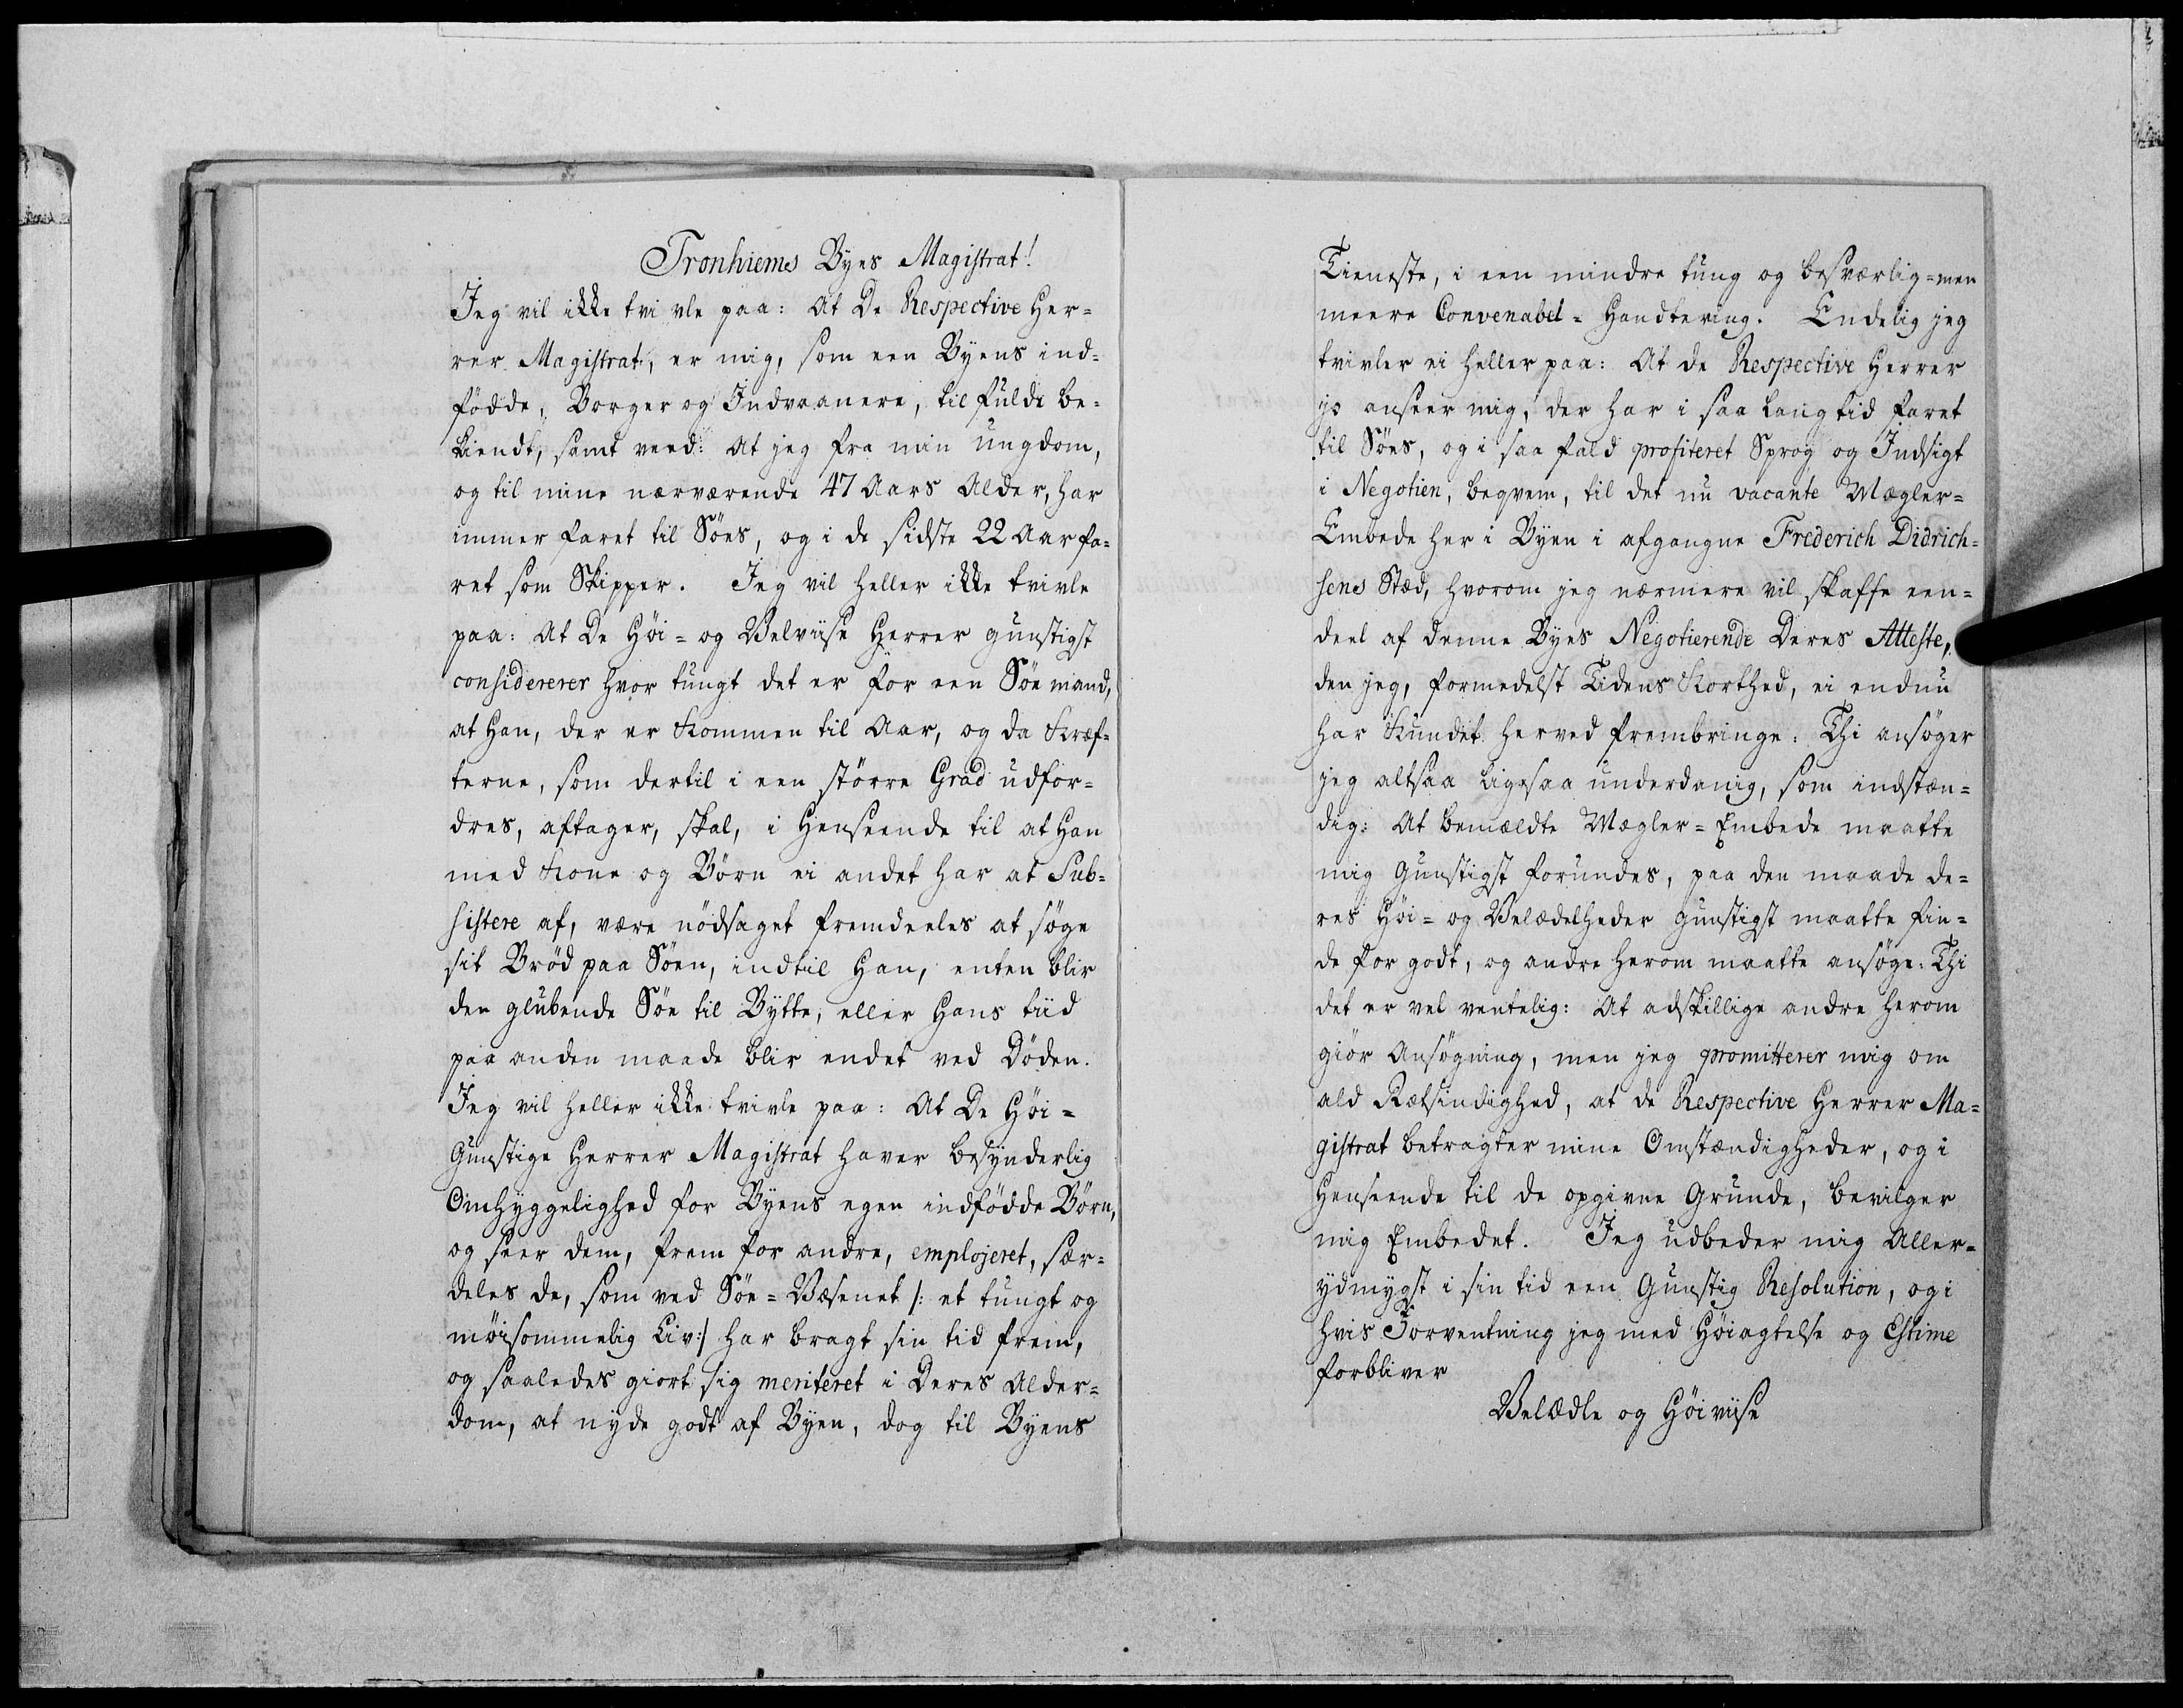 Tronhiems Byes Magistrat!
Jeg vil ikke tvivle paa: At De Respective Her=
rer Magistrat, er mig, som een Byens ind=
födde, Borger og Indvaanere, til fulde be=
kiendt, samt veed: At jeg fra min ungdom,
og til mine nærværende 47 Aars Alder, har
immer faret til Söes, og i de sidste 22 Aar fa=
ret som Skipper. Jeg vil heller ikke tvivle
paa: At De Höi= og Velviise Herrer gunstigst
considererer hvor tungt det er for een Söemand,
at Han, der er kommen til Aar, og da Kræf=
terne, som dertil i een större Grad udfor=
dres, aftager, skal, i Henseende til at Han
med Kone og Börn ei andet har at Sub=
sistere af, være nödsaget fremdeeles at söge
sit Bröd paa Söen, indtil Han, enten blir
den glubende Söe til Bytte, eller Hans tiid
paa anden maade blir endet ved Döden.
Jeg vil heller ikke tvivle paa: At De Höi=
Gunstige Herrer Magistrat haver besynderlig
Omhyggelighed for Byens egen indfödde Börn,
og seer dem, frem for andre, employeret, sær=
deles de, som ved Söe=Væsenet /: et tungt og
möisommelig Liv:/ har bragt sin tid frem,
og saaledes giort sig meriteret i Deres Alder=
dom, at nyde godt af Byen, dog til Byens
Tieneste, i een mindre tung og besværlig=men
meere Convenabel= Handtering. Endelig jeg
tvivler ei heller paa: At de Respective Herrer
jo anseer mig, der har i saa lang tid faret
til Söes, og i saa fald profiteret Sprog og Indsigt
i Negotien, beqvem, til det nu vacante Mægler=
Embede her i Byen i afgangne Frederich Didrich=
sens Stæd, hvorom jeg nærmere vil skaffe een=
deel af denne Byes Negotierende Deres Atteste,
den jeg, formedelst Tidens Korthed, ei endnu
har kundet herved frembringe: Thi ansöger
jeg altsaa ligesaa underdanig, som indstæn=
dig: At bemældte Mægler=Embede maatte
mig Gunstigst forundes, paa den maade de=
res Höi= og Velædelheder gunstigst maatte fin=
de for godt, og andre herom maatte ansöge: Thi
det er vel ventelig: At adskillige andre herom
giör Ansögning, men jeg promitterer mig om
ald Rætsindighed, at de Respective Herrer Ma=
gistrat betragter mine Omstændigheder, og i
Henseende til de opgivne Grunde, bevilger
mig Embedet. Jeg udbeder mig Aller=
ydmygst i sin tid een Gunstig Resolution, og i
hvis Forventning jeg med Höiagtelse og Estime
forbliver
Velædle og Höiviise